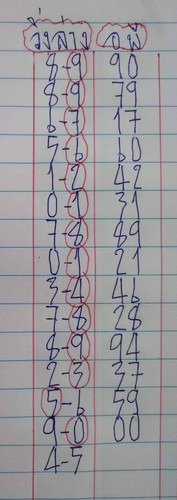 วิ่งล่าง อ.พี
8-9 90
8-9 79
6-7 17
5-6 60
1-2 42
0-1 31
7-8 89
0-1 21
3-4 46
7-8 28
8-9 94
2-3 37
5-6 59
9-0 00
4-5